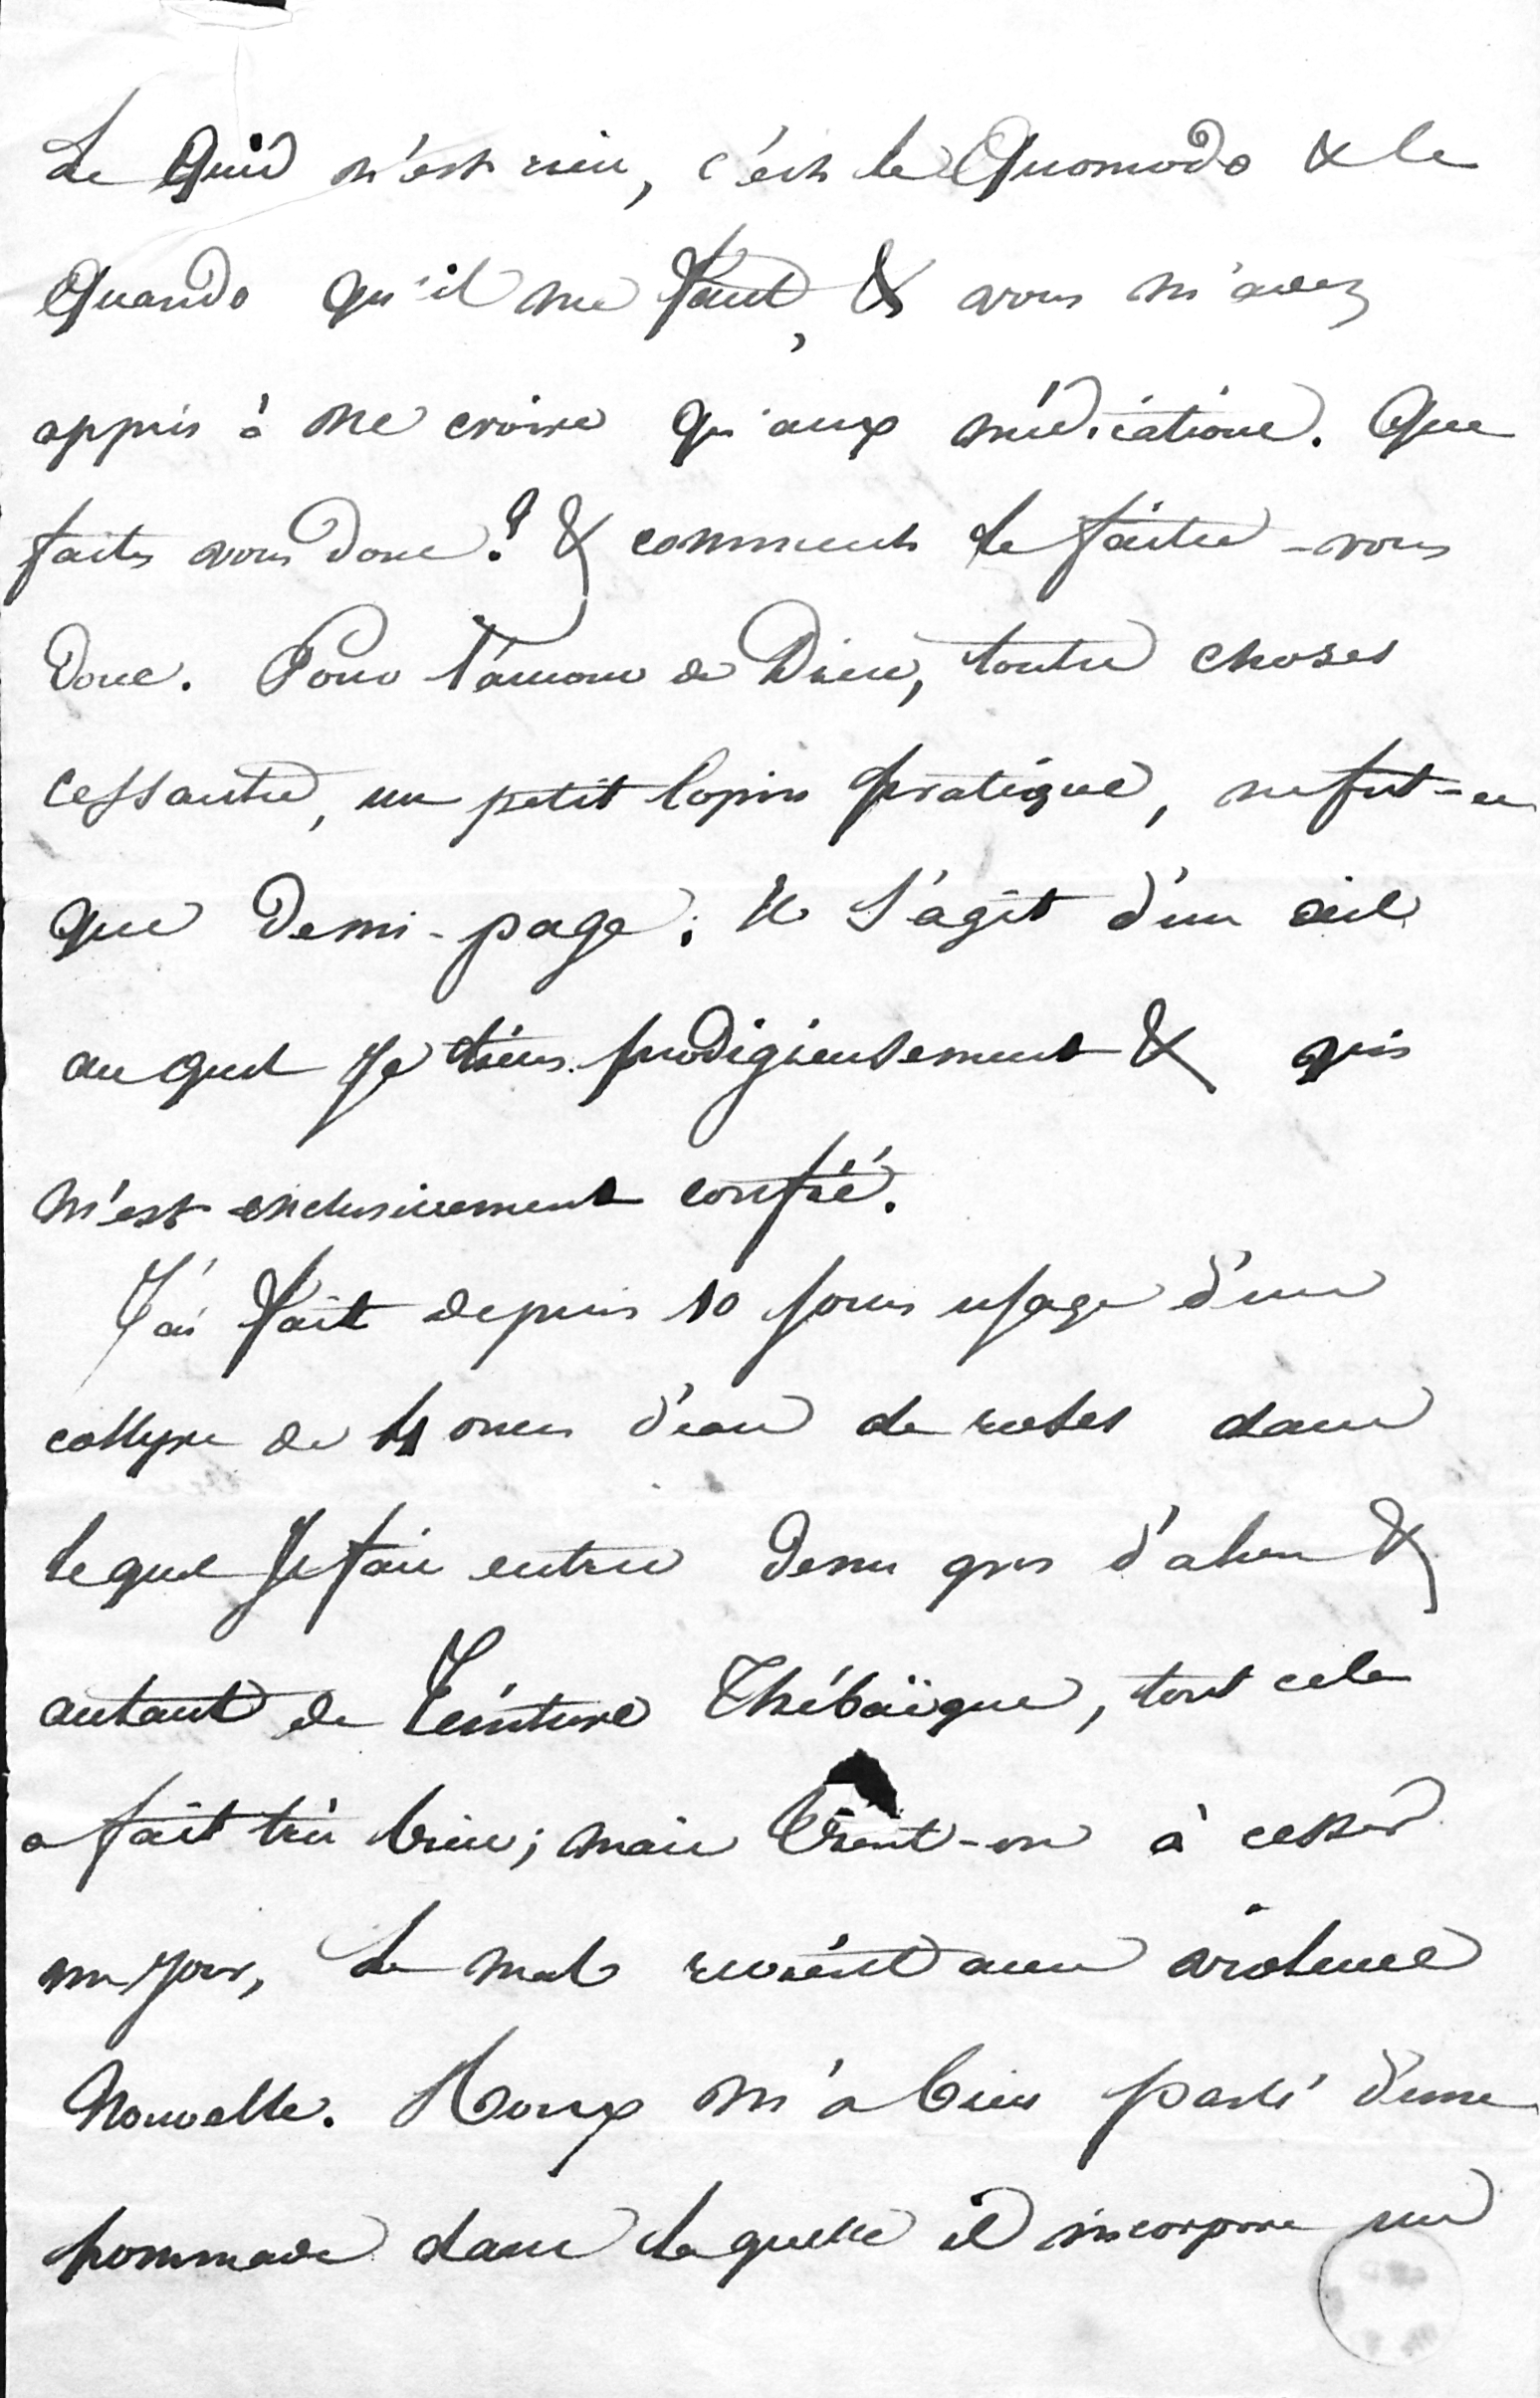 Le Quid n'est rien, c'est le Quomodo & le
Quando qu'il me faut, & vous m'avez
appris à ne croire qu'aux médications. Que
faites vous donc? & comment le faites-vous
donc. Pour l'amour de Dieu, toutes choses
cessantes, un petit lopin pratique, ne fut-ce
que demi-page; il s'agit d'un œil
auquel je tiens prodigieusement & qui
m'est exclusivement confié.
J'ai fait depuis 10 jours usage d'un
collyre de 4 onces d'eau de roses dans
lequel je fais entrer demi gros d'alun &
autant de Teinture Thébaïque, tout cela
a fait très bien; mais vient-on à cesser
un jour, le mal revient avec violence
nouvelle. Roux m'a bien parlé d'une
pommade dans laquelle il incorpore un